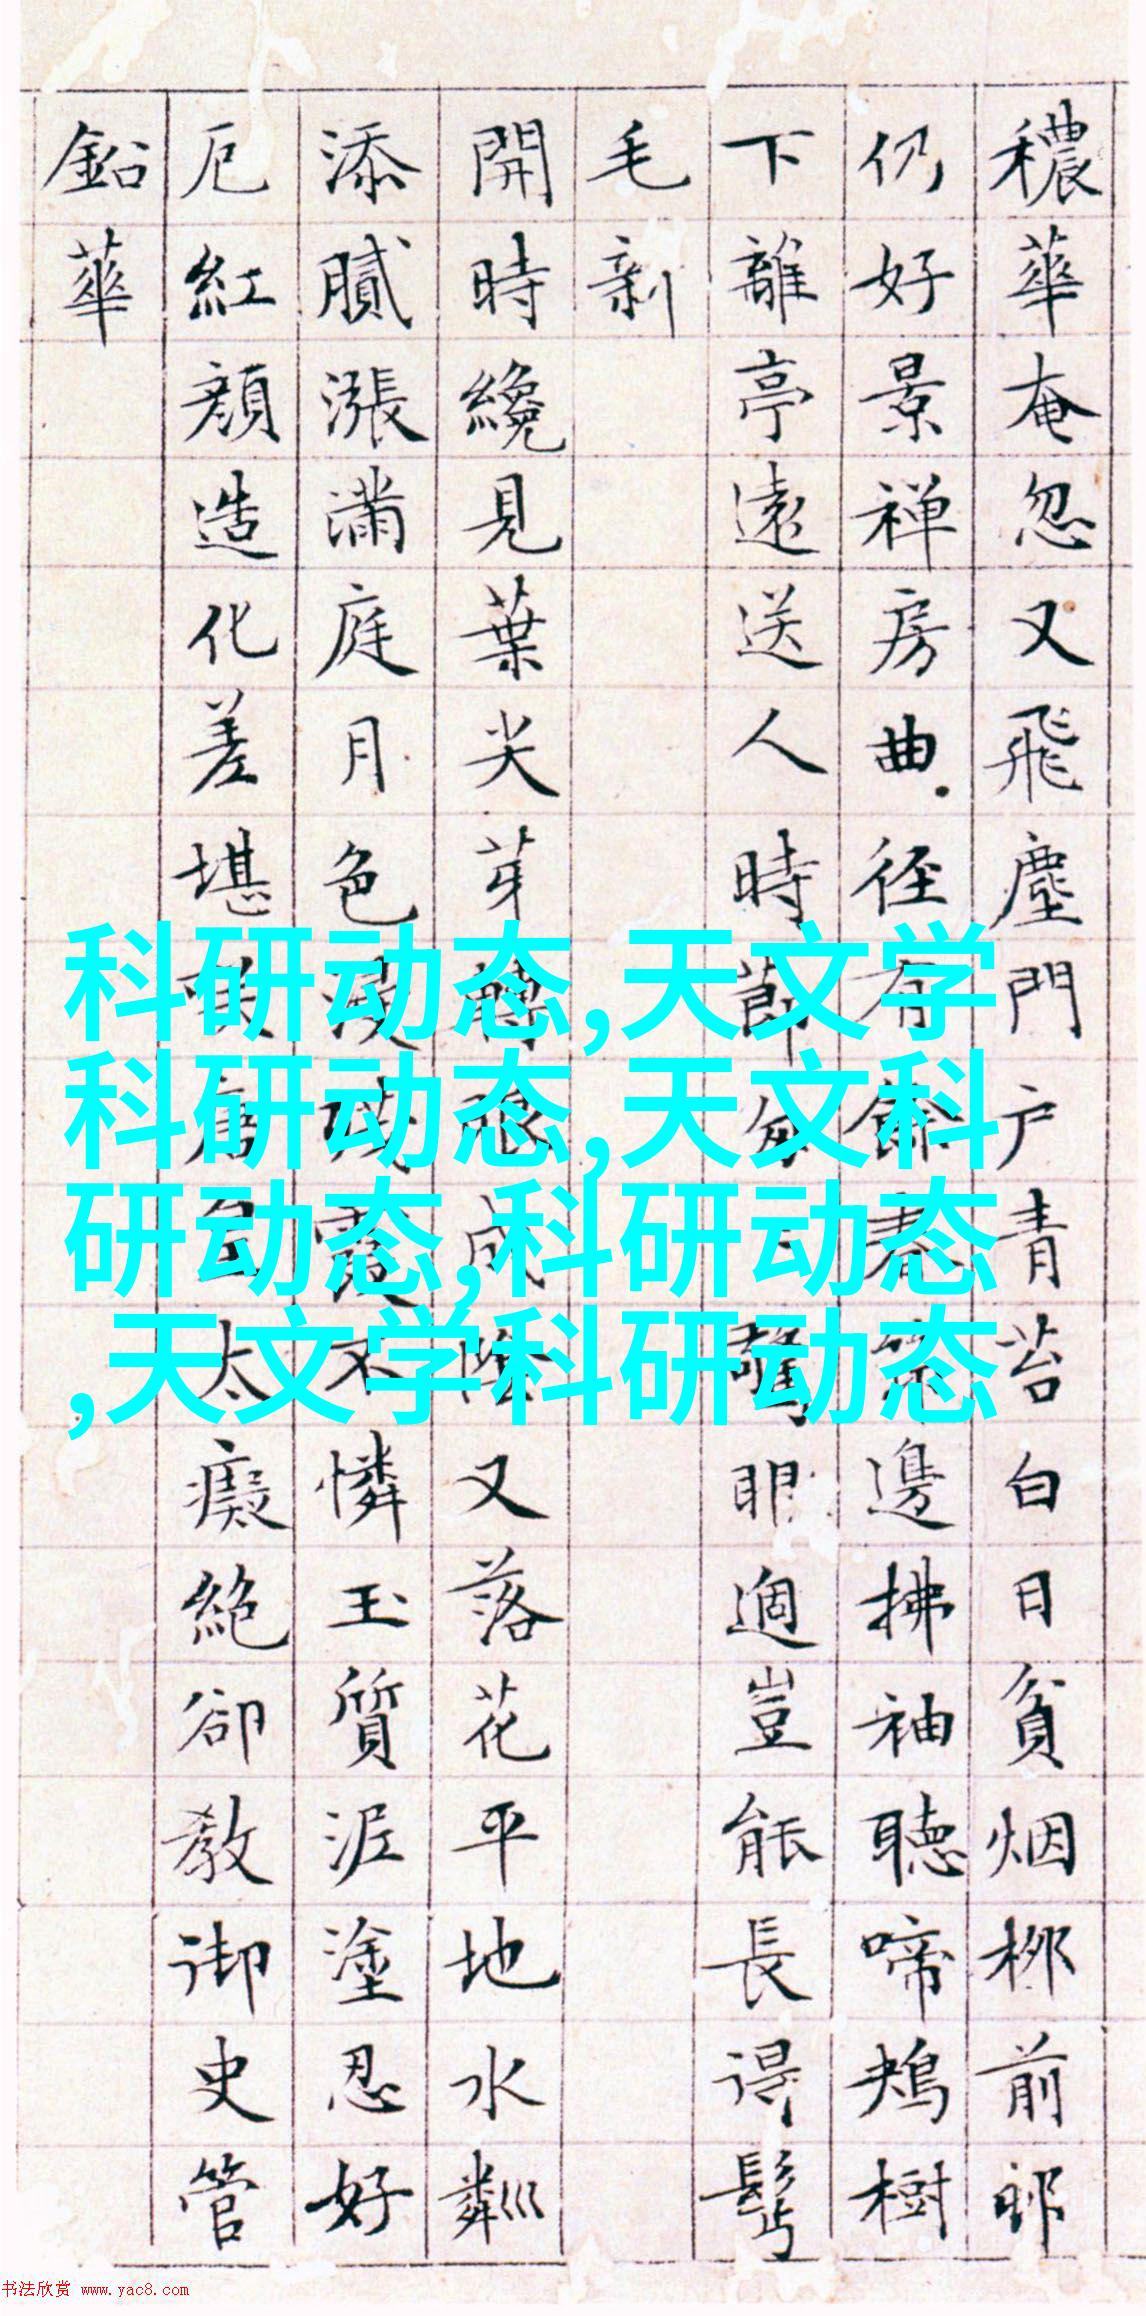 穠華奄忽又飛塵門戶青苔白日貧烟柳前
仍好景禅房曲径有餘春邊拂袖聽啼鴂樹
下離亭遠送人時節驚眼適豈能長得髩
毛新
開時纔見葉尖芽轉成陰又落花平地水粼
添膩漲滿庭月色不憐玉質泥塗忍好
厄紅顏造化差堪太癡絕卻教御史管
鉛華
科研动态,天文学
科研动态,天文科
研动态,科研动态
,天文学科研动态
书法欣赏 www.yac8.com